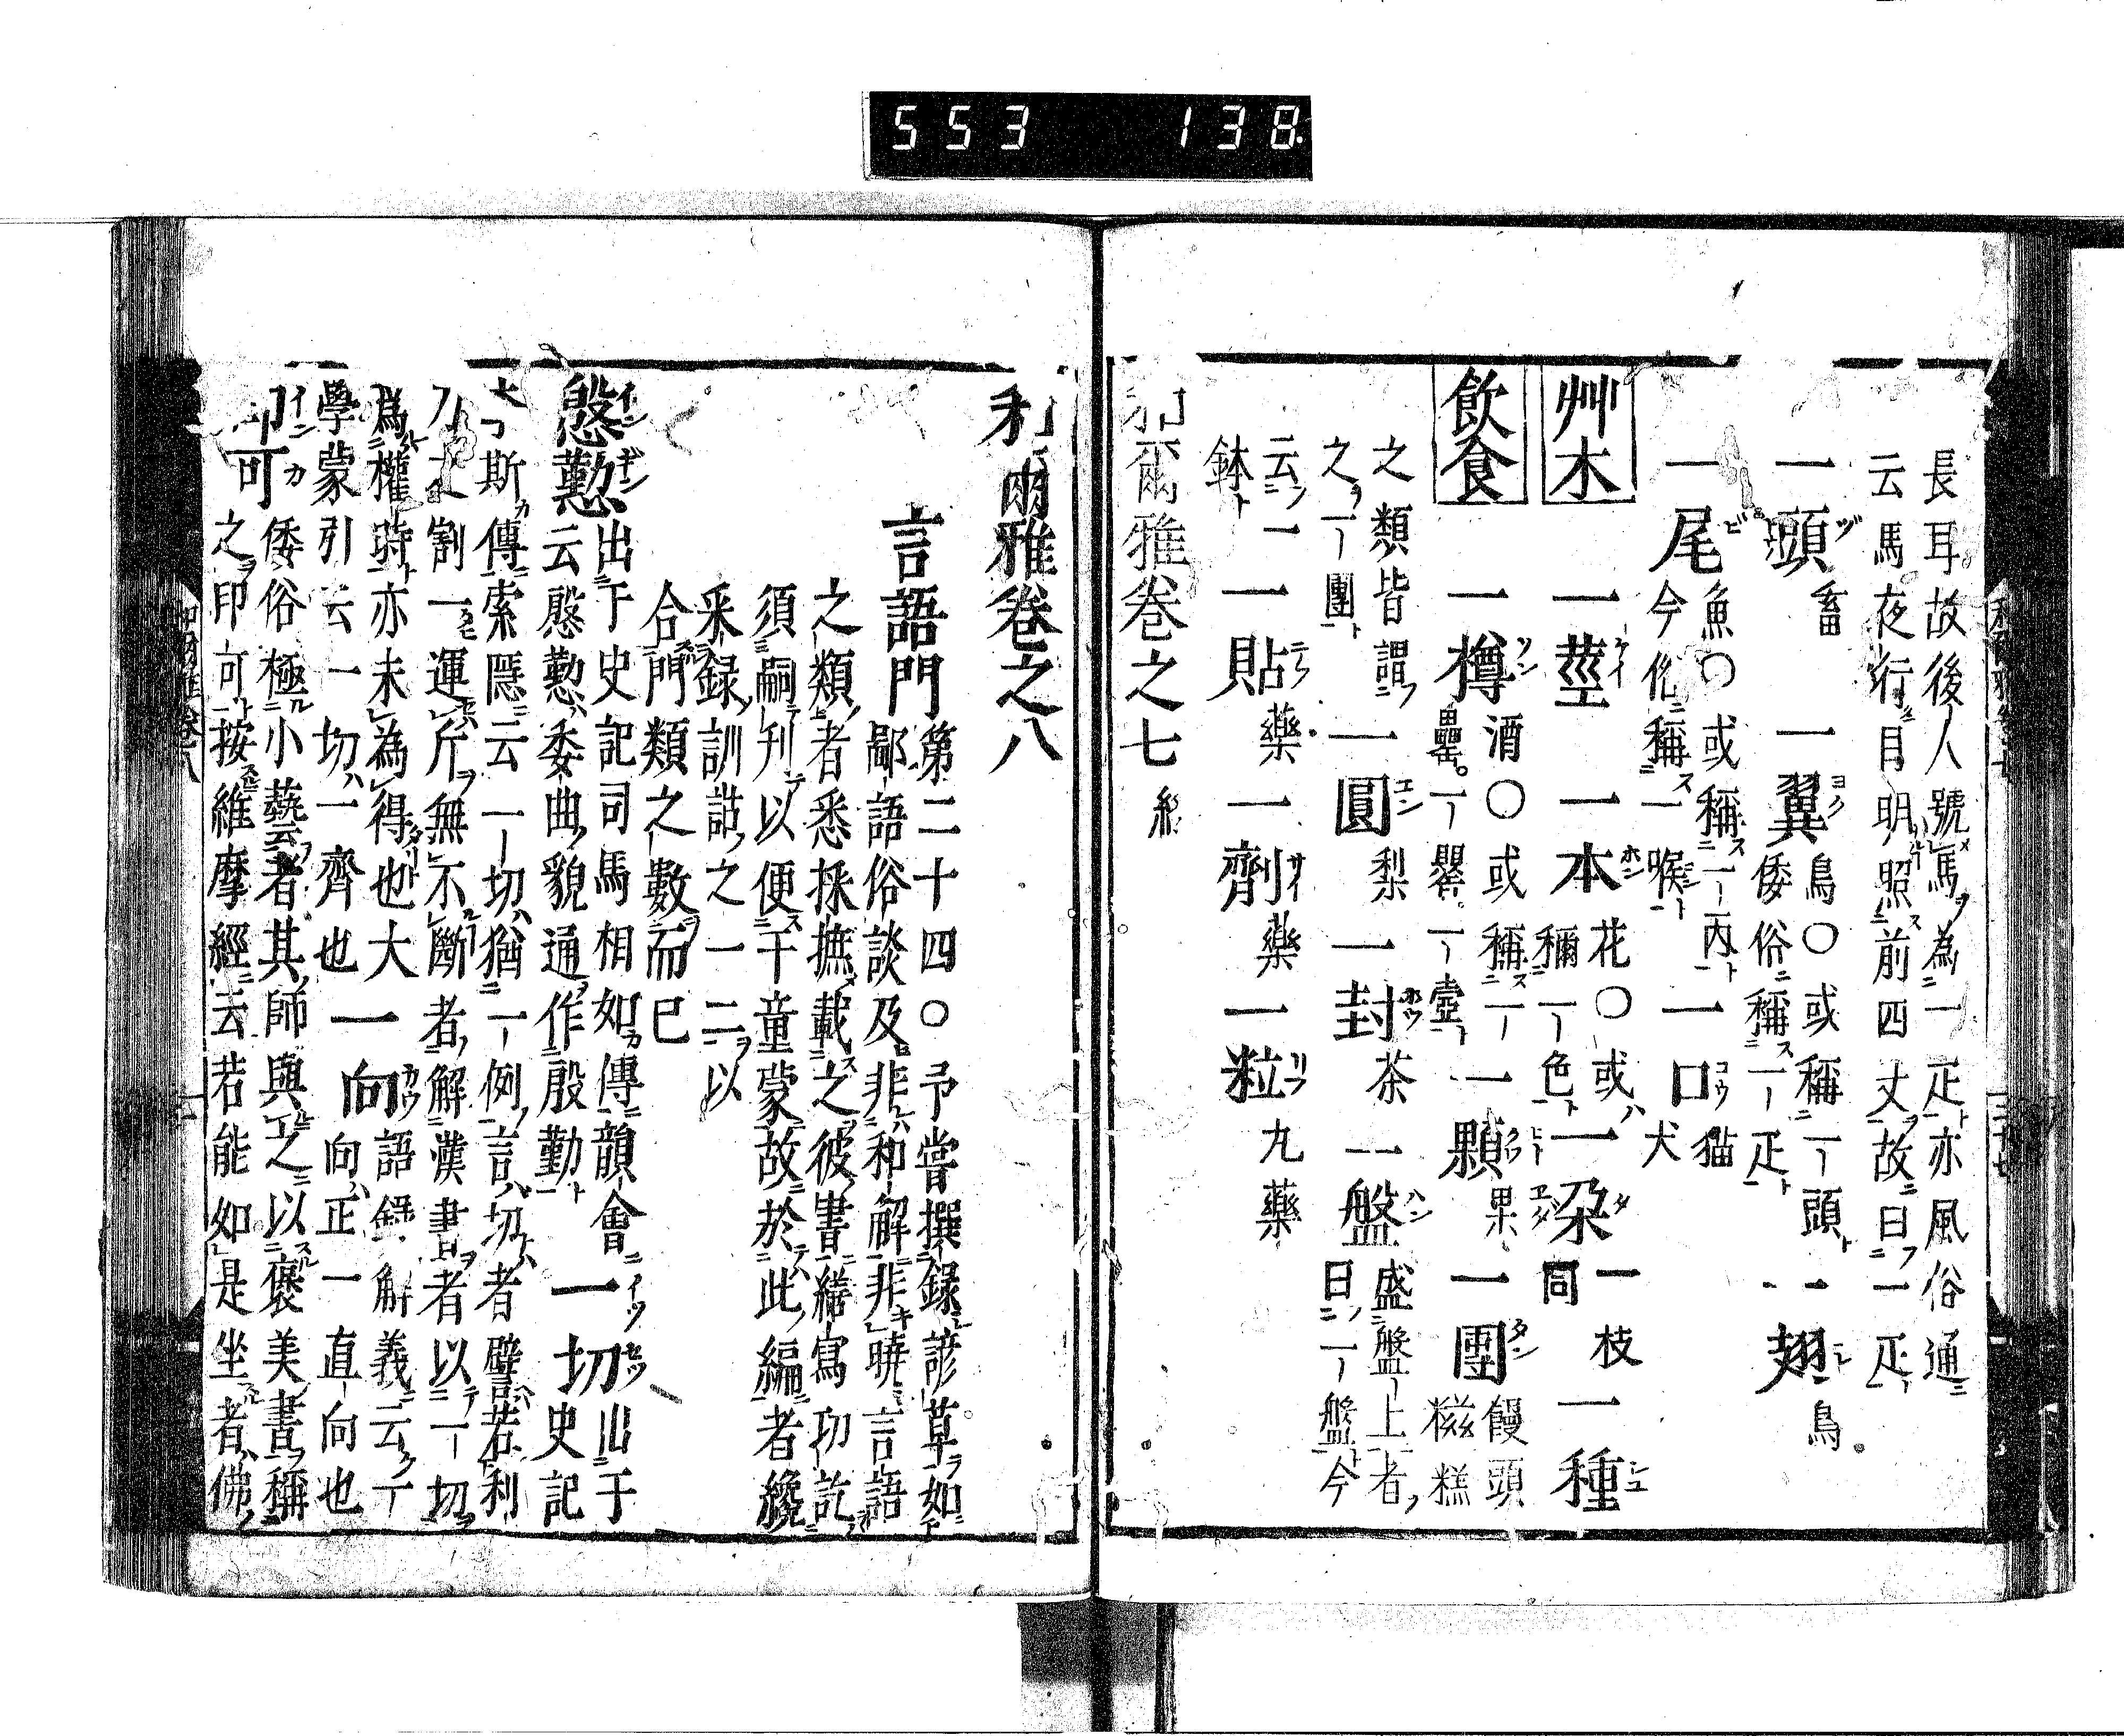 553 138
長耳故後人號馬為一疋亦風俗通
云馬夜行目明照前四丈故曰一疋
一頭 畜 一翼 鳥〇或稱一頭 倭俗稱一疋 一翅 鳥
一尾 魚〇或稱一丙 今俗稱一喉 一口 猫 犬
艸木 一莖 一本 花〇或 稱一色 一朶 同 一枝 一種
飲食 一樽 酒〇或稱一罍。一罌。一壺 一顆 果 一團 饅頭 糍糕
之類皆謂之一團 一圓 梨 一封 茶 一盤 盛盤上者曰一盤今
云一鉢 一貼 藥 一劑 藥 一粒 丸藥
和爾雅卷之七 終
和爾雅卷之八
言語門第二十四〇予嘗撰錄諺草如
鄙語俗談及非和解非曉言語
之類者悉採摭載之彼書繕寫功訖
須嗣刊以便于童蒙故於此編者纔
釆録訓詁之一二以
合門類之數而已
慇懃 出于史記司馬相如傳韻會
云慇懃委曲貌通作殷勤 一切 出于史記
斯傳索隱云一切猶一例言切者譬若利
刀之割一運斤無不斷者解漢書者以一切
爲權時亦未為得也大學蒙引云一切一齊也
一向 語錄解義云一向向正一直向也
印可 倭俗極小藝者其師與之以褒美書稱
之印可按維摩經云若能如是坐者佛